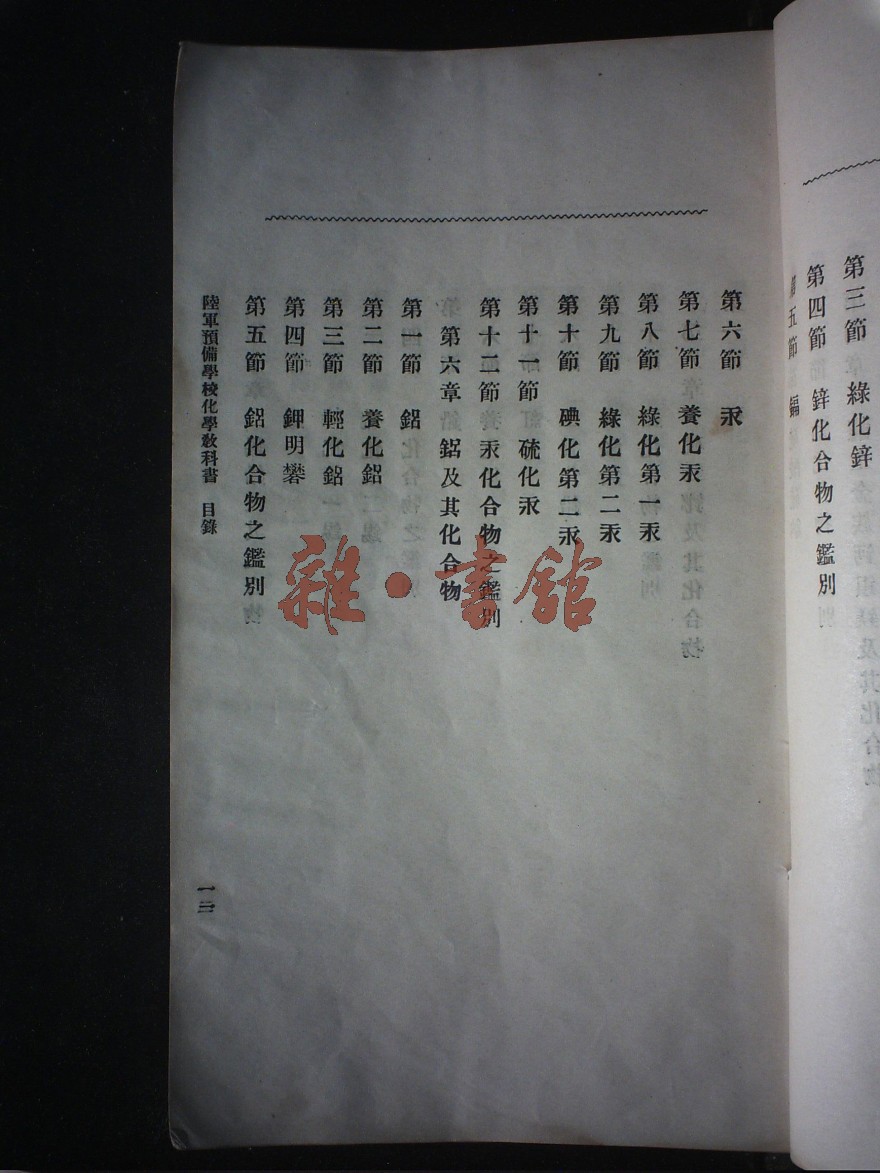 第三節 綠化鋅
第四節 鋅化合物之鑑別
五節 鎘
第六節 汞
第七節 養化汞
第八節 綠化第一汞
第九節 綠化第二汞
第十節 碘化第二汞
第十一節 硫化汞
第十二節 汞化合物之鑑別
第六章 鋁及其化合物
第一節 鋁
第二節 養化鋁
第三節 輕化鋁
第四節 鉀明礬
第五節 鋁化合物之鑑別
陸軍預備學校化學敎科書 目錄
一三
雜·書館